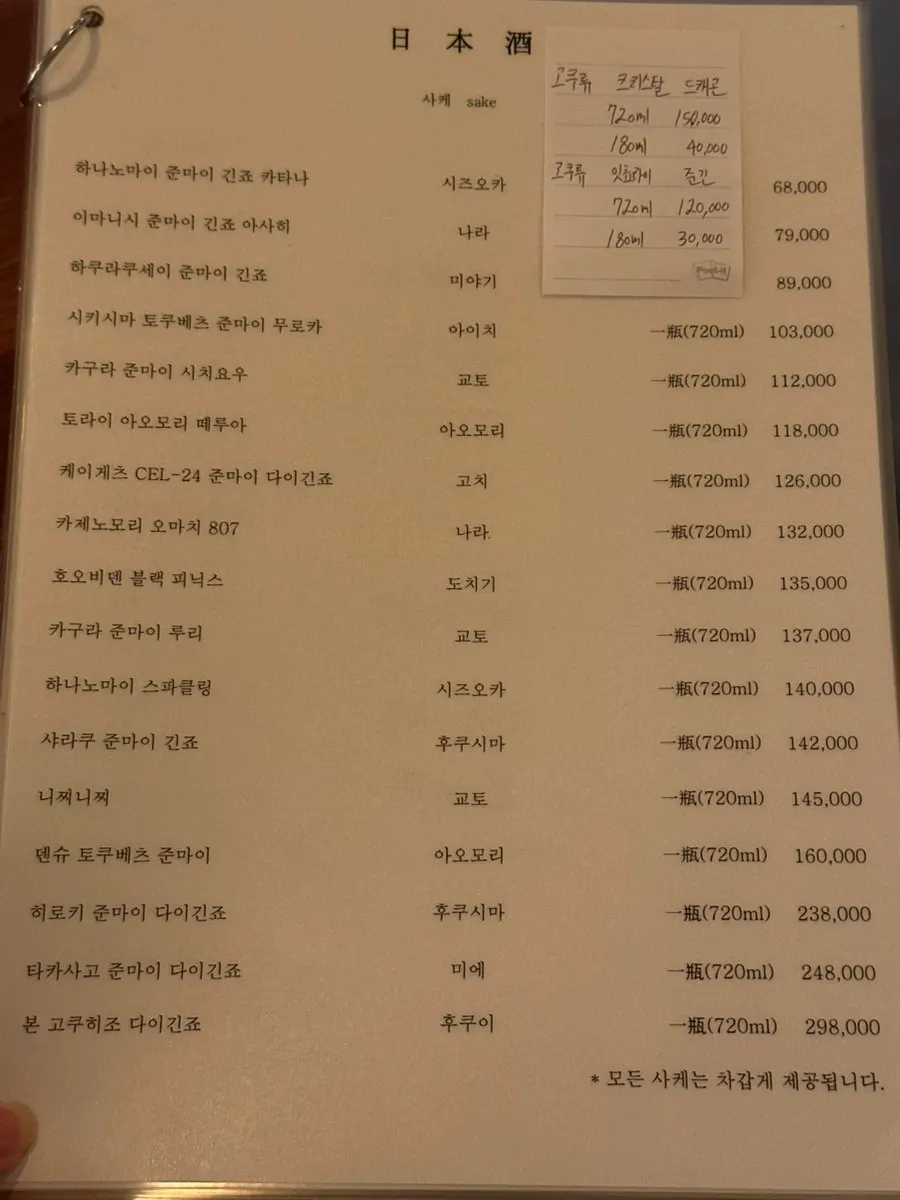 日 本 酒
사케 sake
고쿠류 크리스탈 드래곤
720ml 150,000
180ml 40,000
고쿠류 잇쵸라이 준긴
720ml 120,000
180ml 30,000
Post-it
하나노마이 준마이 긴죠 카타나 시즈오카 68,000
이마니시 준마이 긴죠 아사히 나라 79,000
하쿠라쿠세이 준마이 긴죠 미야기 89,000
시키시마 토쿠베츠 준마이 무로카 아이치 一瓶(720ml) 103,000
카구라 준마이 시치요우 교토 一瓶(720ml) 112,000
토라이 아오모리 떼루아 아오모리 一瓶(720ml) 118,000
케이게츠 CEL-24 준마이 다이긴죠 고치 一瓶(720ml) 126,000
카제노모리 오마치 807 나라 一瓶(720ml) 132,000
호오비덴 블랙 피닉스 도치기 一瓶(720ml) 135,000
카구라 준마이 루리 교토 一瓶(720ml) 137,000
하나노마이 스파클링 시즈오카 一瓶(720ml) 140,000
샤라쿠 준마이 긴죠 후쿠시마 一瓶(720ml) 142,000
니찌니찌 교토 一瓶(720ml) 145,000
덴슈 토쿠베츠 준마이 아오모리 一瓶(720ml) 160,000
히로키 준마이 다이긴죠 후쿠시마 一瓶(720ml) 238,000
타카사고 준마이 다이긴죠 미에 一瓶(720ml) 248,000
본 고쿠히조 다이긴죠 후쿠이 一瓶(720ml) 298,000
* 모든 사케는 차갑게 제공됩니다.